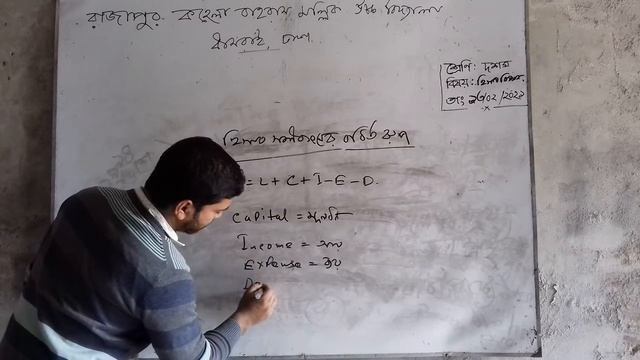 রাজাপুর কহেলা বাহরাম মল্লিক উচ্চ বিদ্যালয়
ধামরাই, ঢাকা
শ্রেণি: দশম
বিষয়: হিসাববিজ্ঞান
হিসাব সমীকরণের বর্ধিত রূপ
= L + C + I - E - D.
Capital = মূলধন
Income = আয়
Expense = ব্যয়
D